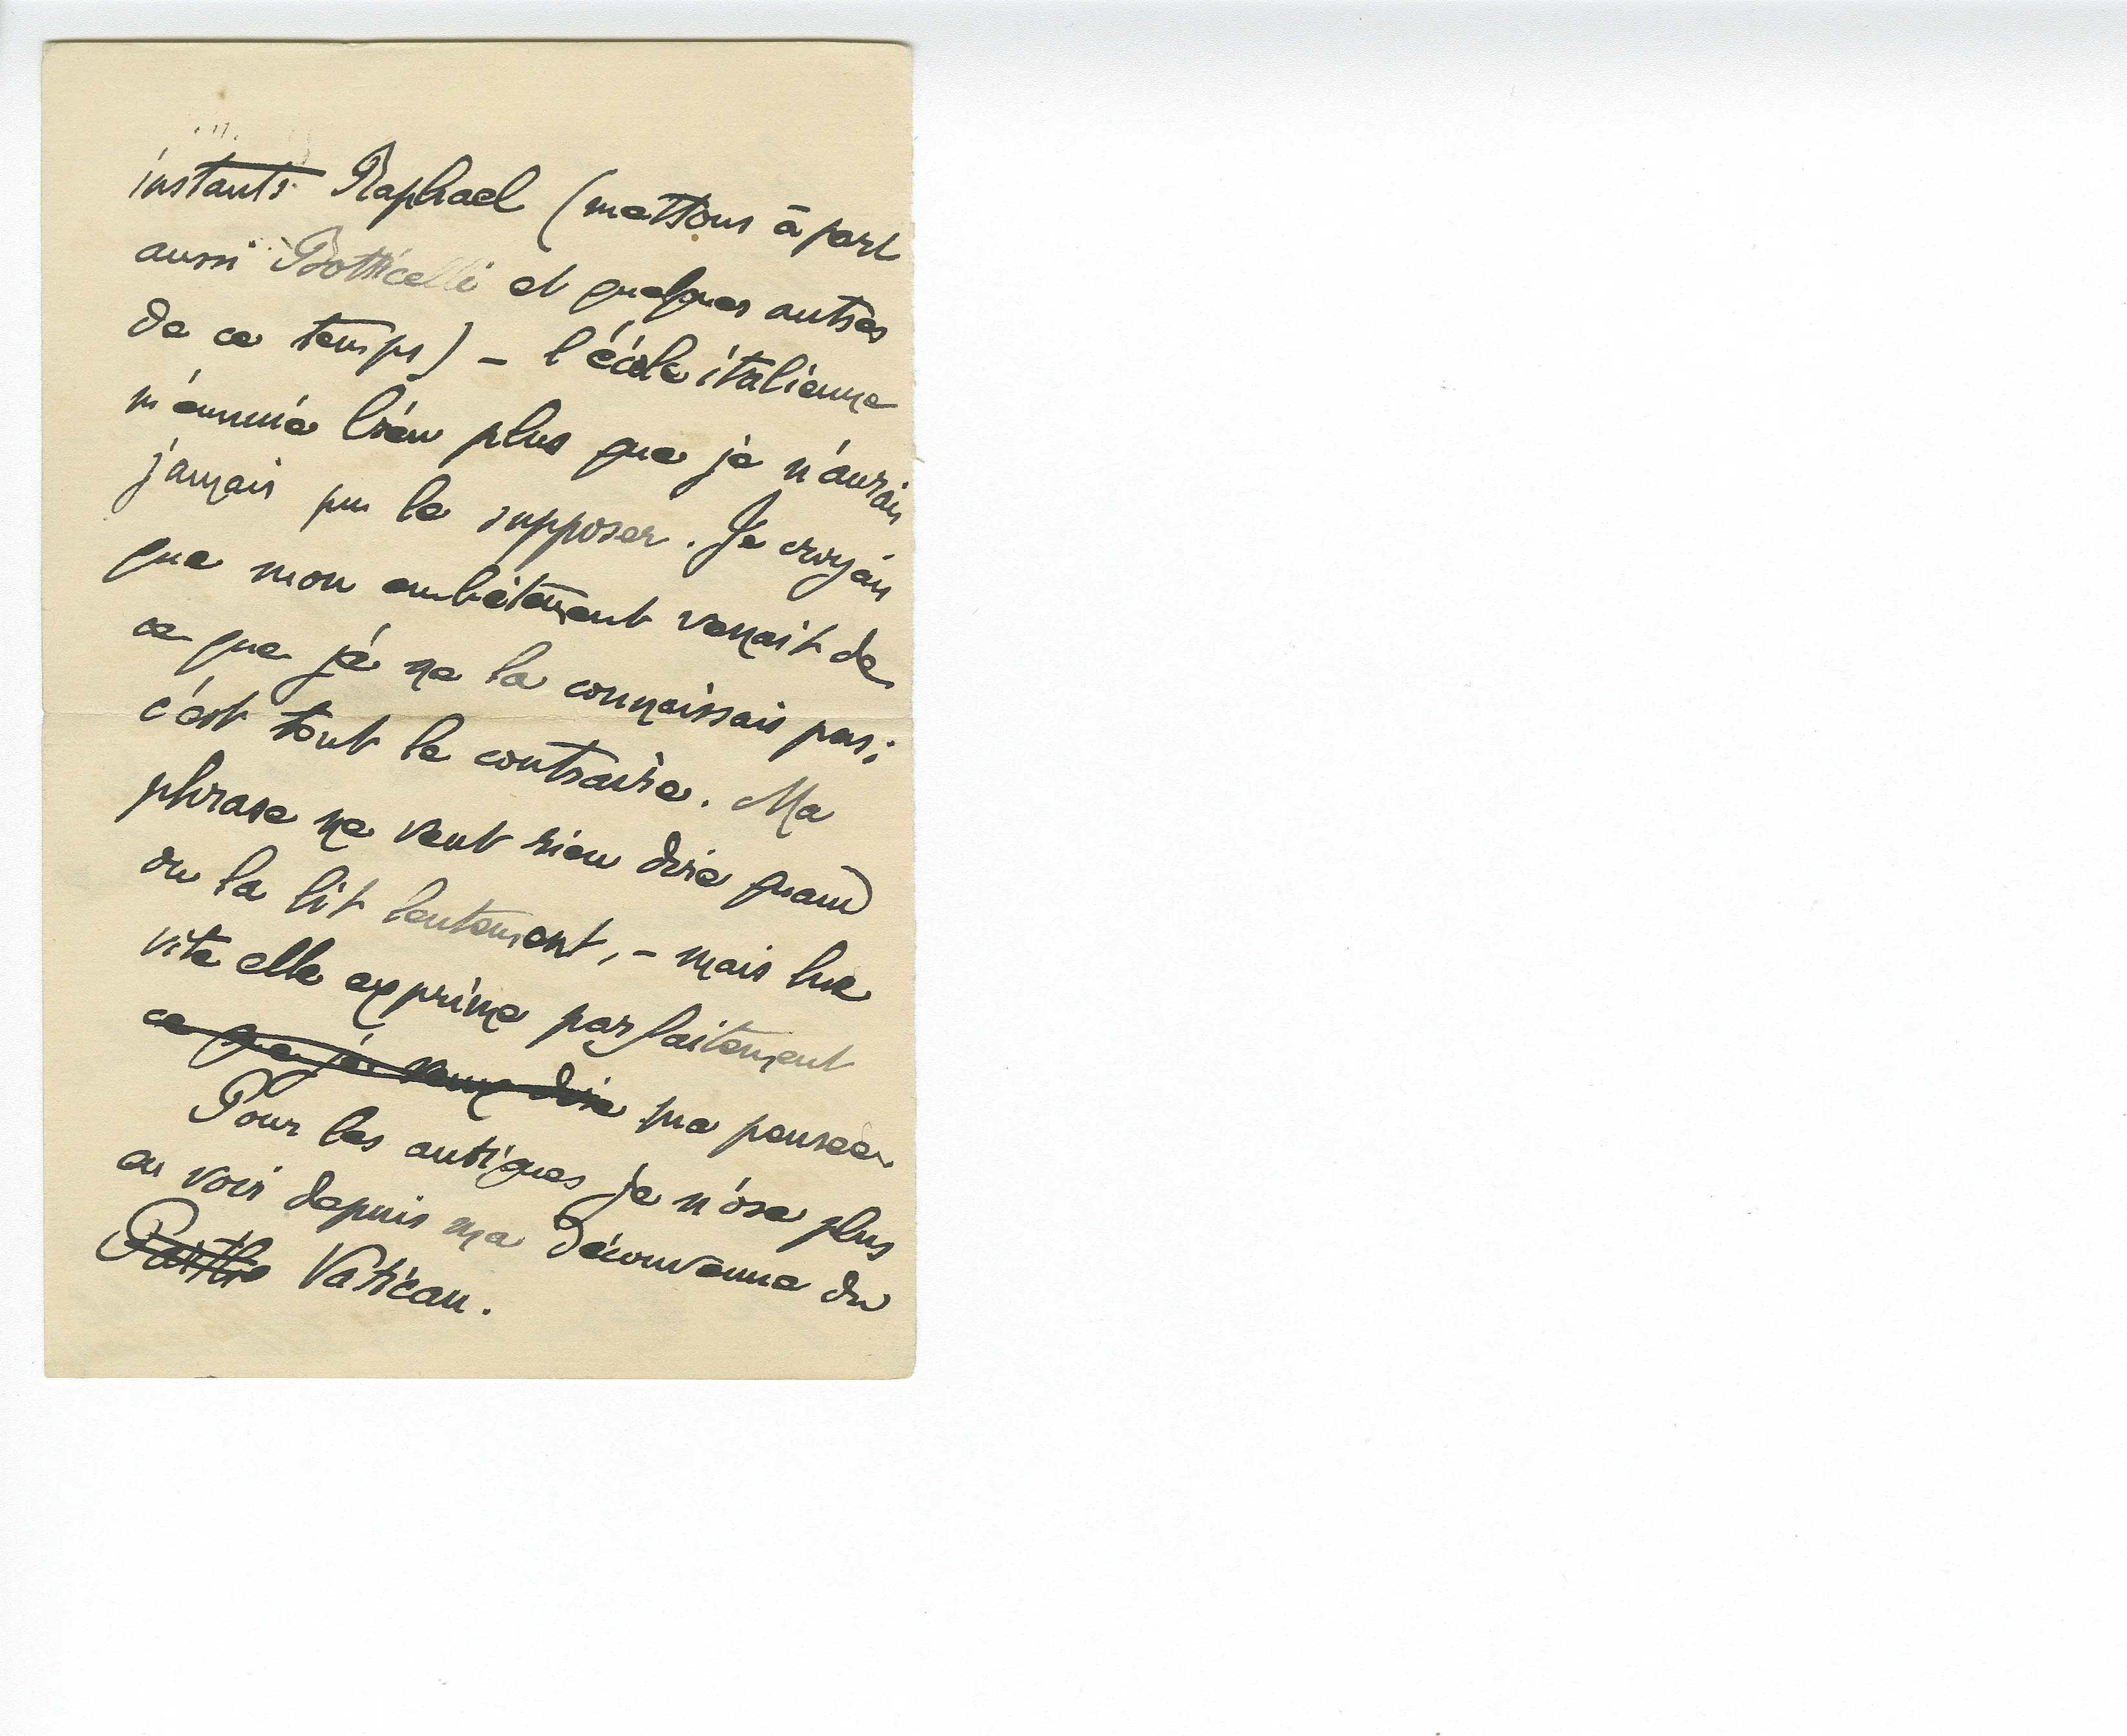 instants Raphael (mettons à part
aussi Botticelli et quelques autres
de ce temps) – l'école italienne
m'ennuie bien plus que je n'aurais
jamais pu le supposer. Je croyais
que mon embêtement venait de
ce que je ne la connaissais pas ;
c'est tout le contraire. Ma
phrase ne veut rien dire quand
on la lit lentement, – mais lue
vite elle exprime parfaitement
ce que je veux dire ma pensée.
Pour les antiques je n'ose plus
en voir depuis ma déconvenue du
Vatican.